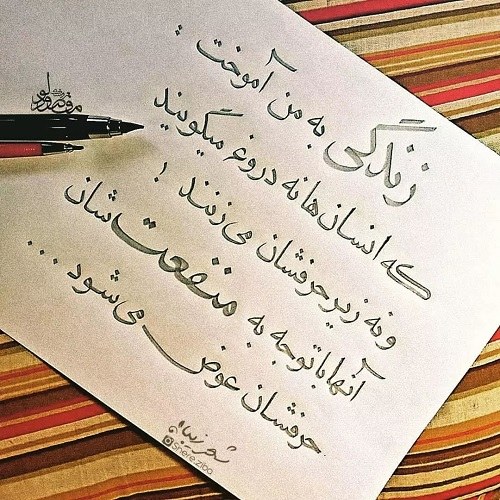 زندگی به من آموخت :
که انسان‌ها نه دروغ میگویند
و نه زیر حرفشان می زنند !
آنها با توجه به منفعت‌شان
حرفشان عوض می شود ...
شعر زیبا
@Shere.ziba